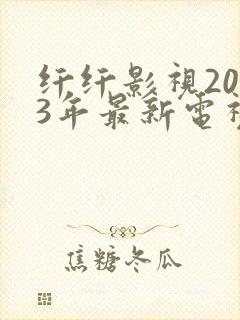 纤纤影視20
3年最新電視
焦糖冬瓜